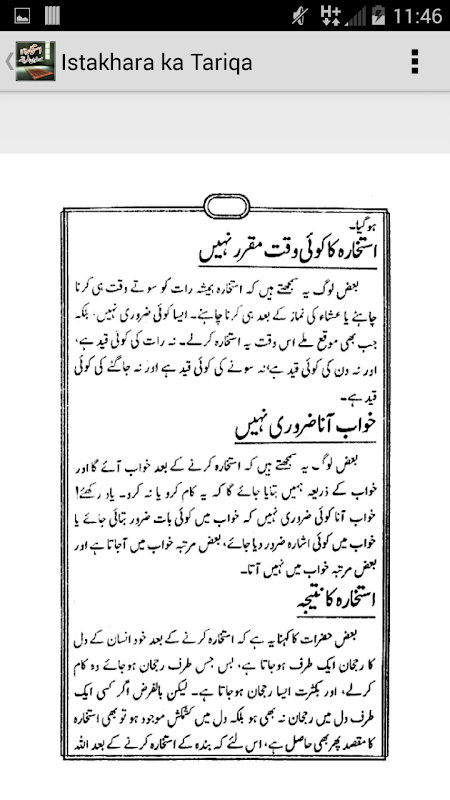 H+
11:46
Istakhara ka Tariqa
ہوگیا۔
استخارہ کا کوئی وقت مقرر نہیں
بعض لوگ یہ سمجھتے ہیں کہ استخارہ ہمیشہ رات کو سوتے وقت ہی کرنا
چاہئے یا عشاء کی نماز کے بعد ہی کرنا چاہئے۔ ایسا کوئی ضروری نہیں، بلکہ
جب بھی موقع ملے اس وقت یہ استخارہ کرلے۔ نہ رات کی کوئی قید ہے،
اور نہ دن کی کوئی قید ہے، نہ سونے کی کوئی قید ہے اور نہ جاگنے کی کوئی
قید ہے۔
خواب آنا ضروری نہیں
بعض لوگ یہ سمجھتے ہیں کہ استخارہ کرنے کے بعد خواب آئے گا اور
خواب کے ذریعہ ہمیں بتایا جائے گا کہ یہ کام کرو یا نہ کرو۔ یاد رکھئے!
خواب آنا کوئی ضروری نہیں کہ خواب میں کوئی بات ضرور بتائی جائے یا
خواب میں کوئی اشارہ ضرور دیا جائے، بعض مرتبہ خواب میں آجاتا ہے اور
بعض مرتبہ خواب میں نہیں آتا۔
استخارہ کا نتیجہ
بعض حضرات کا کہنا یہ ہے کہ استخارہ کرنے کے بعد خود انسان کے دل
کا رجحان ایک طرف ہوجاتا ہے، بس جس طرف رجحان ہوجائے وہ کام
کرلے، اور بکثرت ایسا رجحان ہوجاتا ہے۔ لیکن بالفرض اگر کسی ایک
طرف دل میں رجحان نہ بھی ہو بلکہ دل میں کشمکش موجود ہو تو بھی استخارہ
کا مقصد پھر بھی حاصل ہے، اس لئے کہ بندہ کے استخارہ کرنے کے بعد اللہ